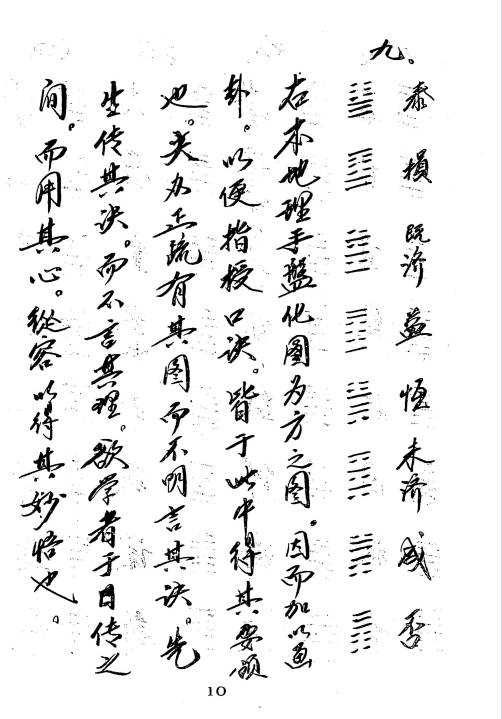 九。
泰 損 既济 益 恒 未济 咸 否
右本地理手盤化圖为方之图。因而加以画
卦。以便指授口诀。皆于此中得其要领
也。夫力正疏有其图而不明言其诀。先
生传其决。而不言其理。欲学者于日传之
间。而用其心。從容以得其妙悟也。
10